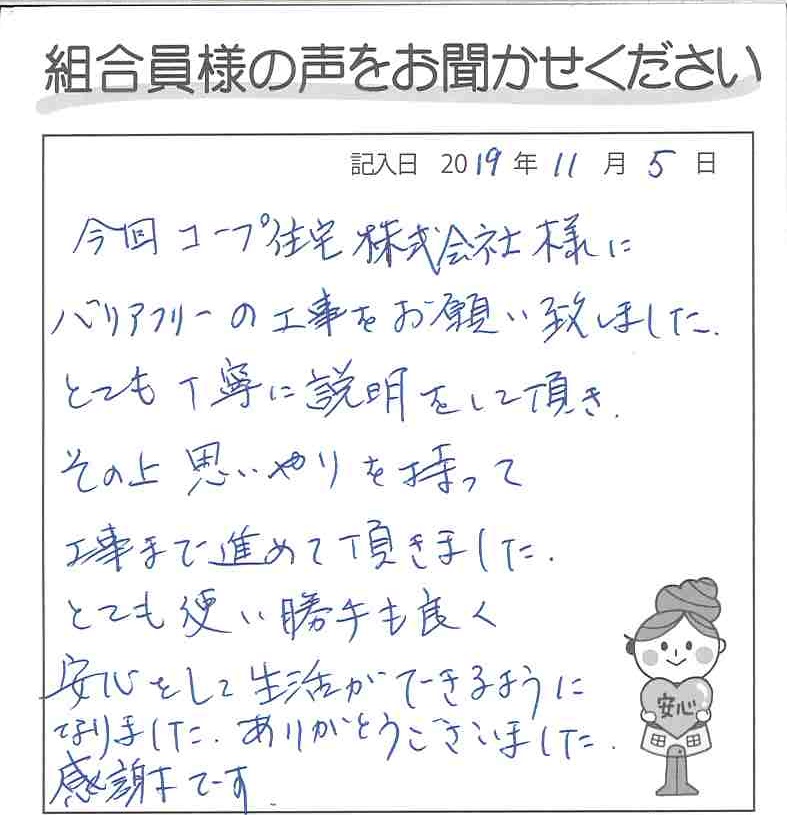 組合員様の声をお聞かせください
記入日 2019年11月5日
今回コープ住宅株式会社様に
バリアフリーの工事をお願い致しました.
とても丁寧に説明をして頂き.
その上思いやりを持って
工事まで進めて頂きました.
とても使い勝手も良く
安心をして生活ができるように
なりました.ありがとうございました.
感謝です.
安心